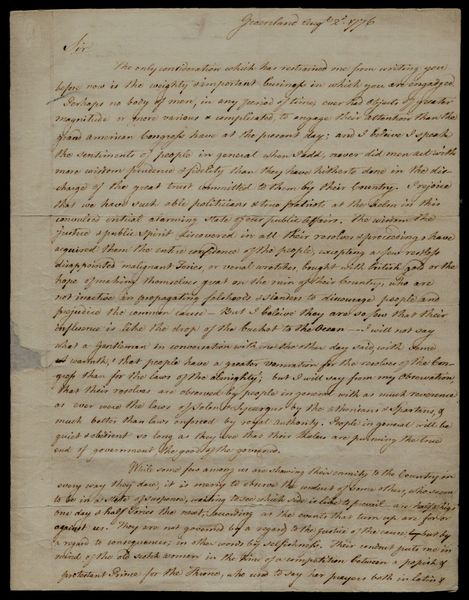 Greenland Augt 2d. 1776
Sir
The only consideration which has restrained me from writing you
before now is the weighty & important business in which you are engaged.
Perhaps no body of men, in any period of time, ever had objects of greater
magnitude or more various & complicated, to engage their attention than the
grand american Congress have at the present day; and I beleive I speak
the sentiments of people in general when I add, never did men act with
more wisdom prudence & fidelity than they have hitherto done in the dis-
charge of the great trust committed to them by their Country. I rejoice
that we have such able politicians & true patriots at the helm in this
convulsed critical alarming state of our public Affairs. The wisdom the
Justice & public Spirit discovered in all their resolves & proceedings have
acquired them the entire confidence of the people, excepting a few restless
disappointed malignant Tories, or venal wretches, bought with british gold or the
hope of making themselves great on the ruin of their Country, who are
not inactive in propagating falshoods & slanders to discourage people and
prejudice the common cause — But I beleive they are so few that their
influence is like the drop of the bucket to the Ocean — I will not say
what a Gentleman in conversation with me the other day said, with some
warmth, that people have a greater veneration for the resolves of the Con-
gress than for the laws of the Almighty; but I will say from my observation
that their resolves are observed by people in general with as much reverence
as ever were the laws of Solon & Lycurgus by the athenians & Spartans, &
much better than laws enforced by royal authority. People in general will be
quiet & obedient so long as they see that their rulers are pursuing the true
end of government the good of the governed.
While some few among us are shewing their enmity to the Country in
every way they dare, it is many to observe the conduct of some others, who seem
to be in a state of suspence, waiting to see which side is like to prevail are half whigs
one day & half Tories the next, according as the events that turn up are for or
against us. They are not governed by a regard to the justice of the cause, but by
a regard to consequences in other words by selfishness. Their conduct puts me in
mind of the old scotch woman in the time of a competition between a popish &
protestant Prince for the Throne, who used to say her prayers both in latin &